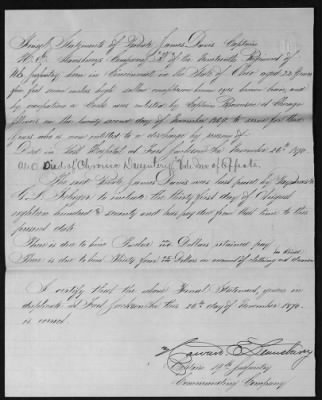 Final Statements of Private James Davis Captain
Company "K" of the Nineteenth Regiment of
US Infantry born in Cincinnati in the State of Ohio aged 22 years
five feet inches high complexion brown eyes brown hair, and
by occupation a Clerk was enlisted by Captain at Chicago
Illinois on the twenty second day of November 1869 to serve for three
years and is now entitled to a discharge by reason of
Died in Hospital at Fort Jackson La November 26th 1870.
Died of Chronic Dysentery
The said Private James Davis was last paid by Paymaster
G. L. to include the thirty first day of August
eighteen hundred & seventy and has pay due from that time to the
present date
There is due to him Dollars retained pay
There is due to him Thirty four Dollars on account of clothing not drawn
in kind
I certify that the above Final Statement, given in
duplicate at Fort Jackson La this 26th day of November 1870.
is correct
Captain 19th Infantry
Commanding Company